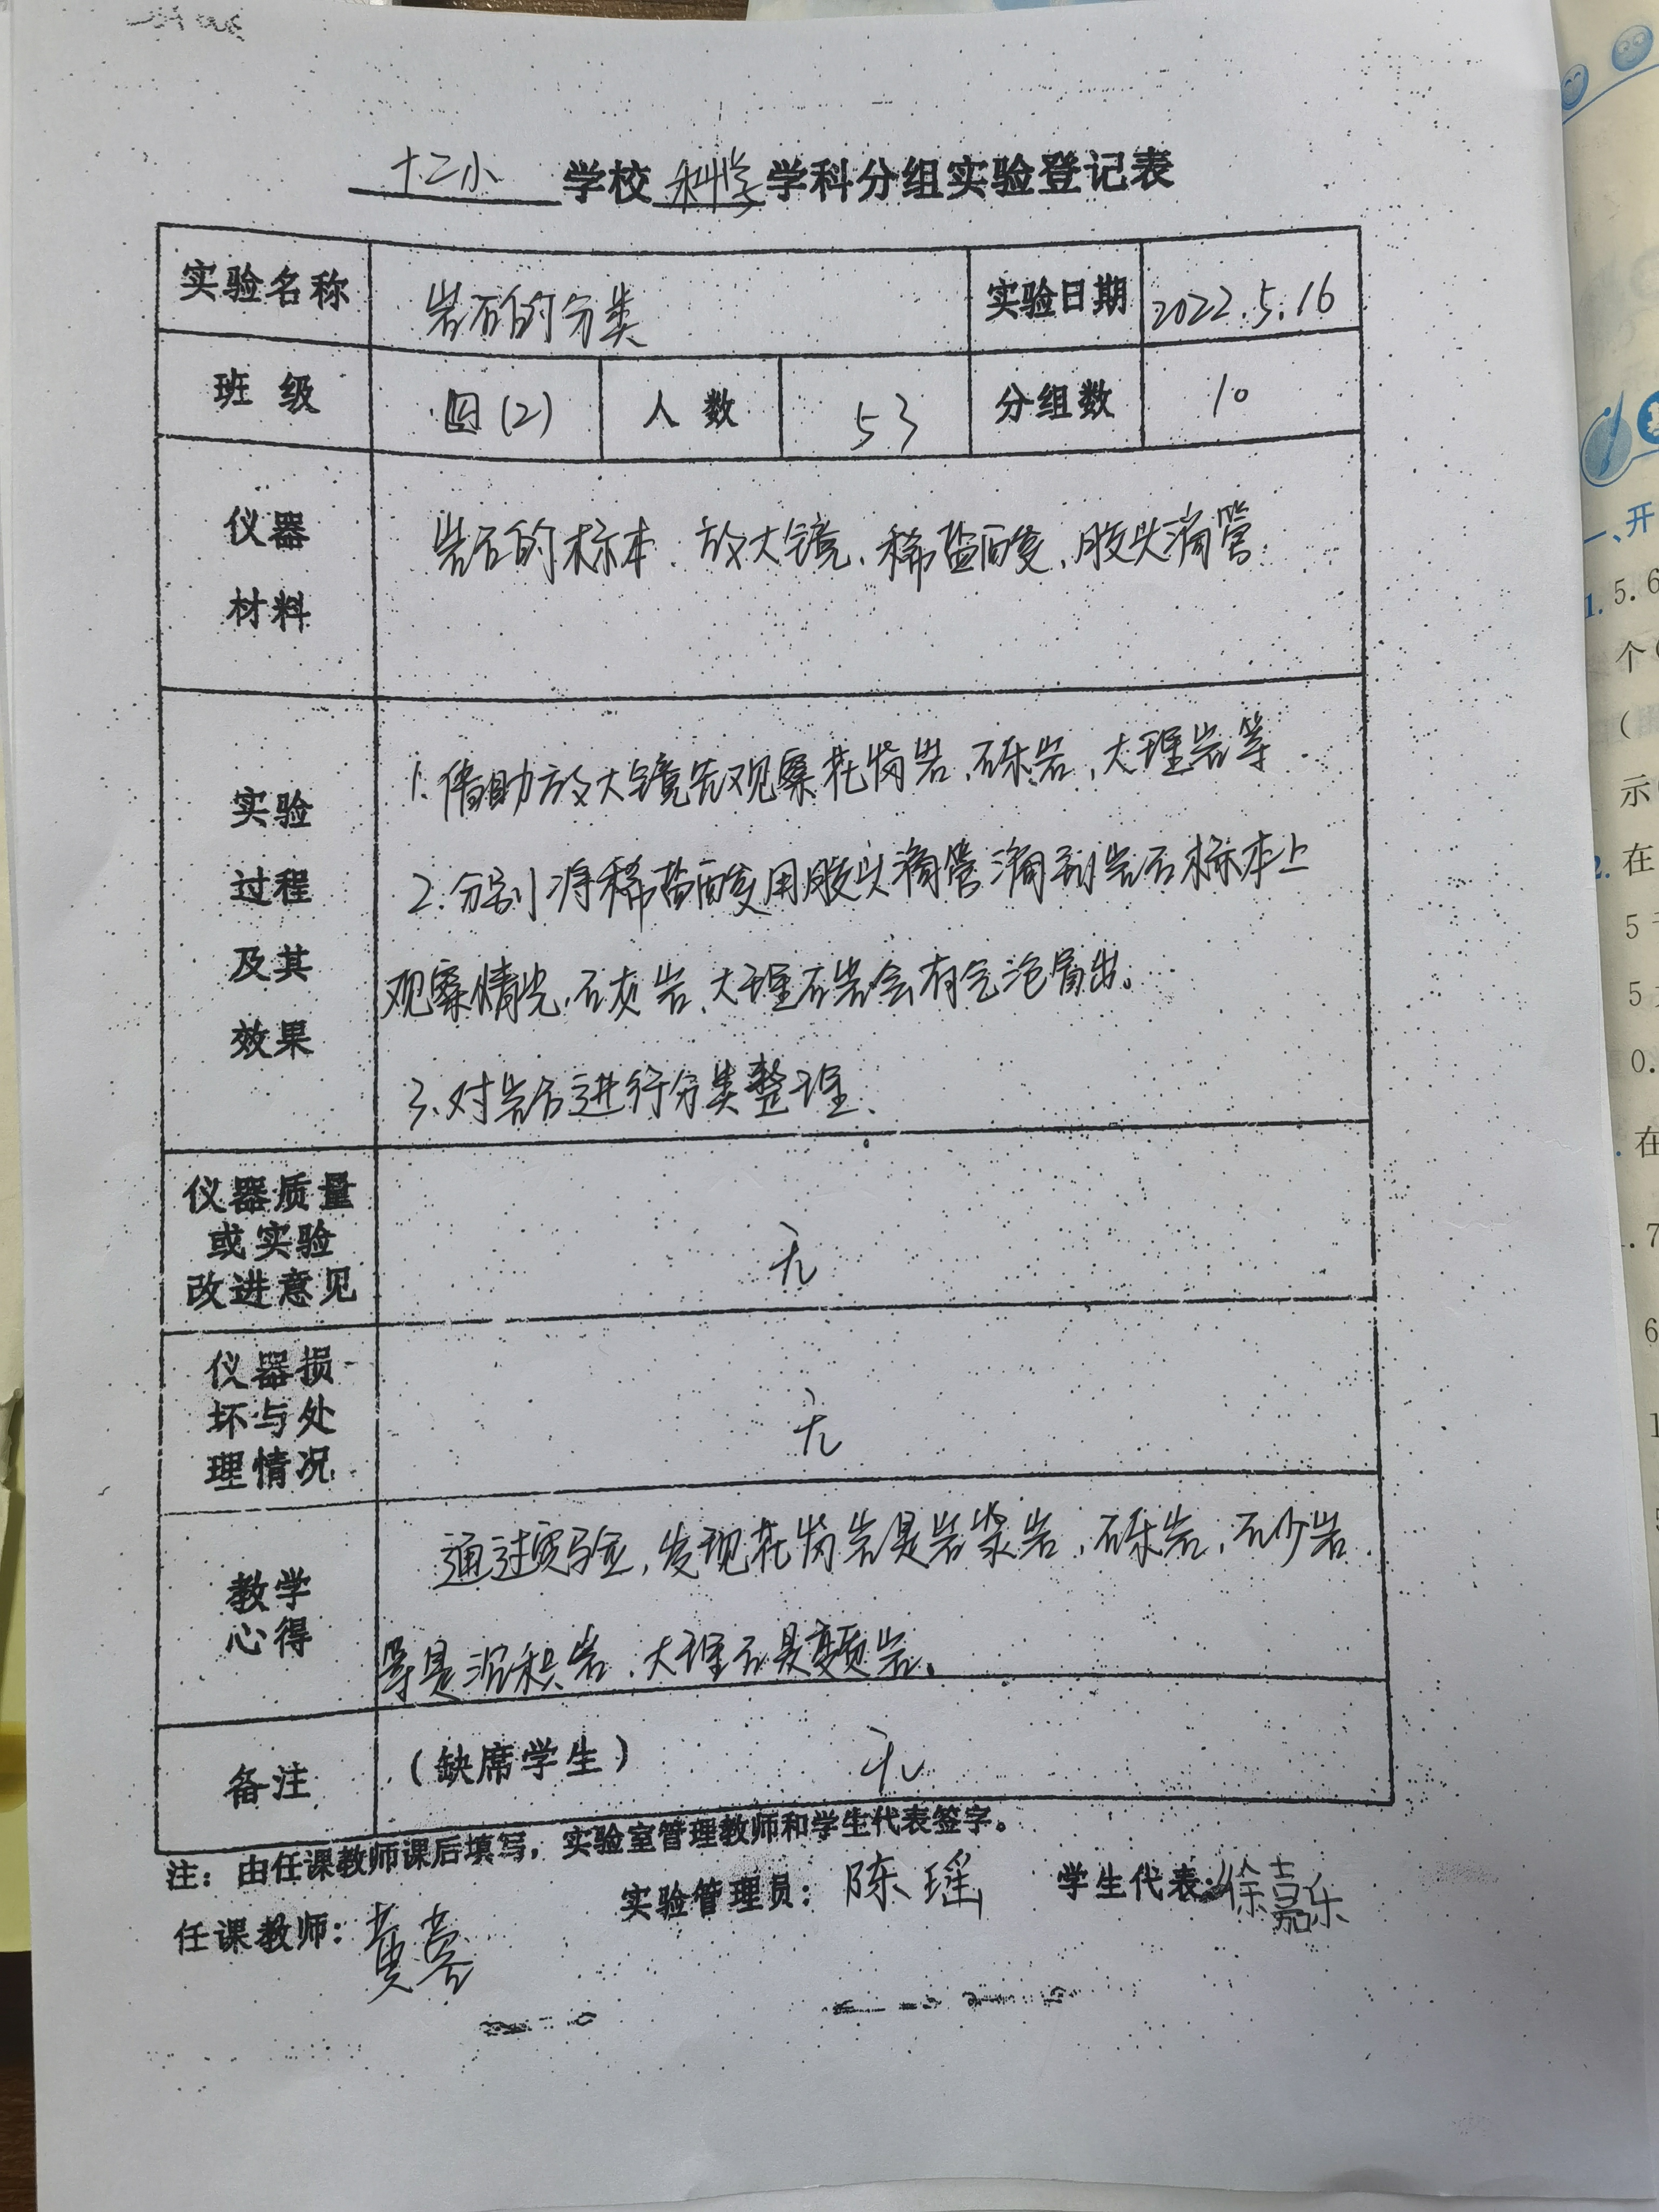 十二小 学校 科学 学科分组实验登记表
实验名称 岩石的分类 实验日期 2022.5.16
班级 四(2) 人数 53 分组数 10
仪器
材料
岩石的标本、放大镜、稀盐酸、胶头滴管
实验
过程
及其
效果
1.借助放大镜先观察花岗岩、砾岩、大理岩等
2.分别将稀盐酸用胶头滴管滴到岩石标本上
观察情况,石灰岩、大理石岩会有气泡冒出。
3、对岩石进行分类整理、
仪器质量
或实验
改进意见
无
仪器损
坏与处
理情况
无
教学
心得
通过实验,发现花岗岩是岩浆岩,砾岩,砂岩
等是沉积岩、大理石是变质岩。
备注 (缺席学生) 无
注:由任课教师课后填写,实验室管理教师和学生代表签字。
任课教师: 黄 实验管理员: 陈瑶 学生代表: 徐嘉乐
一、开
1. 5.6
个(
(
示
2. 在
5
5
0.
在
.7
6
1